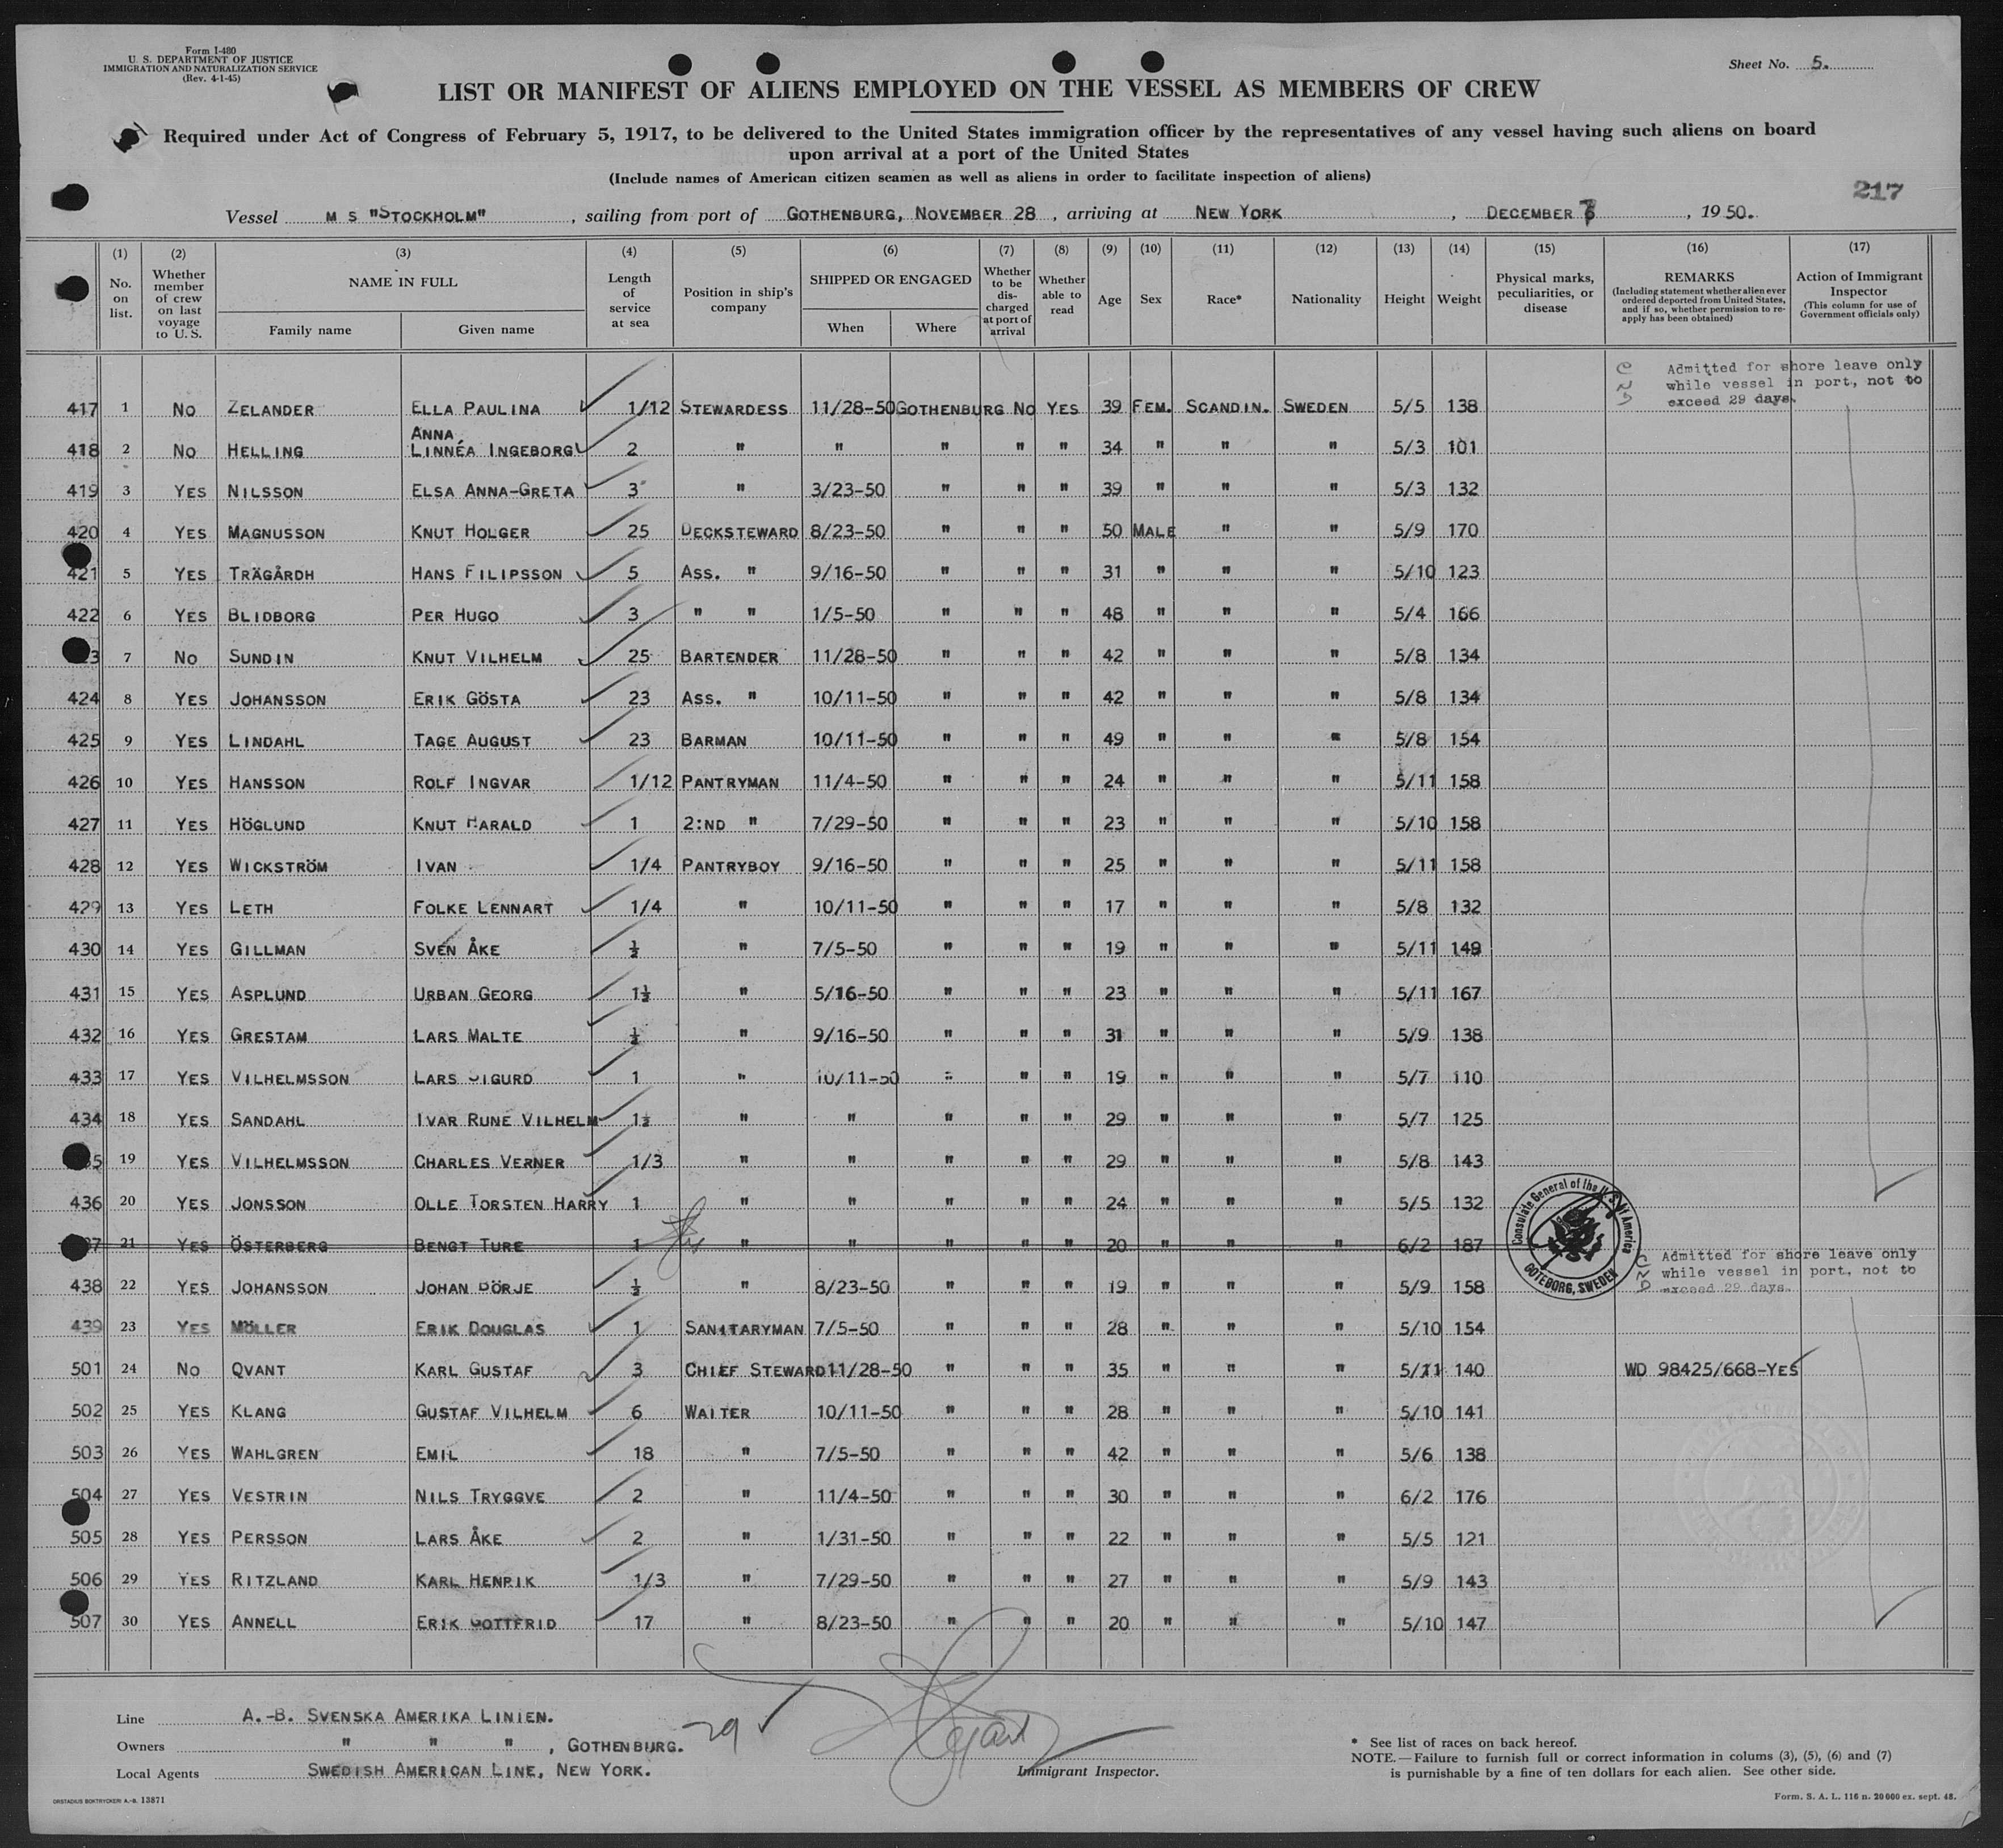 Form I-480
U. S. DEPARTMENT OF JUSTICE
IMMIGRATION AND NATURALIZATION SERVICE
(Rev. 4-1-45)
Sheet No. 5.
LIST OR MANIFEST OF ALIENS EMPLOYED ON THE VESSEL AS MEMBERS OF CREW
Required under Act of Congress of February 5, 1917, to be delivered to the United States immigration officer by the representatives of any vessel having such aliens on board
upon arrival at a port of the United States
(Include names of American citizen seamen as well as aliens in order to facilitate inspection of aliens)
217
Vessel M S "STOCKHOLM", sailing from port of GOTHENBURG, NOVEMBER 28, arriving at NEW YORK, DECEMBER, 1950.
(1) No. on list. (2) Whether member of crew on last voyage to U. S. (3) NAME IN FULL Family name Given name (4) Length of service at sea (5) Position in ship's company (6) SHIPPED OR ENGAGED When Where (7) Whether to be discharged at port of arrival (8) Whether able to read (9) Age (10) Sex (11) Race* (12) Nationality (13) Height (14) Weight (15) Physical marks, peculiarities, or disease (16) REMARKS (Including statement whether alien ever ordered deported from United States, and if so, whether permission to re-apply has been obtained) (17) Action of Immigrant Inspector (This column for use of Government officials only)
Admitted for shore leave only
while vessel in port, not to
exceed 29 days.
417 1 NO ZELANDER ELLA PAULINA 1/12 STEWARDESS 11/28-50 GOTHENBURG NO YES 39 FEM. SCANDIN. SWEDEN 5/5 138
418 2 NO HELLING ANNA LINNÉA INGEBORG 2 " " " " " 34 " " " 5/3 101
419 3 YES NILSSON ELSA ANNA-GRETA 3 " 3/23-50 " " " 39 " " " 5/3 132
420 4 YES MAGNUSSON KNUT HOLGER 25 DECKSTEWARD 8/23-50 " " " 50 MALE " " 5/9 170
421 5 YES TRÄGÅRDH HANS FILIPSSON 5 ASS. " 9/16-50 " " " 31 " " " 5/10 123
422 6 YES BLIDBORG PER HUGO 3 " " 1/5-50 " " " 48 " " " 5/4 166
3 7 NO SUNDIN KNUT VILHELM 25 BARTENDER 11/28-50 " " " 42 " " " 5/8 134
424 8 YES JOHANSSON ERIK GÖSTA 23 ASS. " 10/11-50 " " " 42 " " " 5/8 134
425 9 YES LINDAHL TAGE AUGUST 23 BARMAN 10/11-50 " " " 49 " " " 5/8 154
426 10 YES HANSSON ROLF INGVAR 1/12 PANTRYMAN 11/4-50 " " " 24 " " " 5/11 158
427 11 YES HÖGLUND KNUT HARALD 1 2:ND " 7/29-50 " " " 23 " " " 5/10 158
428 12 YES WICKSTRÖM IVAN 1/4 PANTRYBOY 9/16-50 " " " 25 " " " 5/11 158
429 13 YES LETH FOLKE LENNART 1/4 " 10/11-50 " " " 17 " " " 5/8 132
430 14 YES GILLMAN SVEN ÅKE ½ " 7/5-50 " " " 19 " " " 5/11 149
431 15 YES ASPLUND URBAN GEORG 1½ " 5/16-50 " " " 23 " " " 5/11 167
432 16 YES GRESTAM LARS MALTE ½ " 9/16-50 " " " 31 " " " 5/9 138
433 17 YES VILHELMSSON LARS SIGURD 1 " 10/11-50 " " " 19 " " " 5/7 110
434 18 YES SANDAHL IVAR RUNE VILHELM 1½ " " " " " 29 " " " 5/7 125
5 19 YES VILHELMSSON CHARLES VERNER 1/3 " " " " " 29 " " " 5/8 143
436 20 YES JONSSON OLLE TORSTEN HARRY 1 " " " " " 24 " " " 5/5 132
7 21 YES ÖSTERBERG BENGT TURE 1 " " " " " 20 " " " 6/2 187
Consulate General of the U. S. of America
GOTEBORG, SWEDEN
Admitted for shore leave only
while vessel in port, not to
exceed 29 days.
438 22 YES JOHANSSON JOHAN BÖRJE ½ " 8/23-50 " " " 19 " " " 5/9 158
439 23 YES MÖLLER ERIK DOUGLAS 1 SANITARYMAN 7/5-50 " " " 28 " " " 5/10 154
501 24 NO QVANT KARL GUSTAF 3 CHIEF STEWARD 11/28-50 " " " 35 " " " 5/11 140 WD 98425/668-YES
502 25 YES KLANG GUSTAF VILHELM 6 WAITER 10/11-50 " " " 28 " " " 5/10 141
503 26 YES WAHLGREN EMIL 18 " 7/5-50 " " " 42 " " " 5/6 138
504 27 YES VESTRIN NILS TRYGGVE 2 " 11/4-50 " " " 30 " " " 6/2 176
505 28 YES PERSSON LARS ÅKE 2 " 1/31-50 " " " 22 " " " 5/5 121
506 29 YES RITZLAND KARL HENRIK 1/3 " 7/29-50 " " " 27 " " " 5/9 143
507 30 YES ANNELL ERIK GOTTFRID 17 " 8/23-50 " " " 20 " " " 5/10 147
Line A.-B. SVENSKA AMERIKA LINIEN.
Owners " " ", GOTHENBURG.
29
Local Agents SWEDISH AMERICAN LINE, NEW YORK.
Immigrant Inspector.
* See list of races on back hereof.
NOTE.—Failure to furnish full or correct information in colums (3), (5), (6) and (7)
is purnishable by a fine of ten dollars for each alien. See other side.
ORSTADIUS BOKTRYCKERI A.-B. 13871
Form. S. A. L. 116 n. 20000 ex. sept. 48.